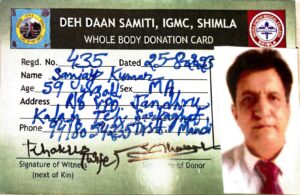 DEH DAAN SAMITI, IGMC, SHIMLA
WHOLE BODY DONATION CARD
Regd. No. 435 Dated 25-8-2023
Name Sanjay Kumar
Age 59 Sex MA
Address R/o VPO. Jandhru
Kalan Teh Sarkaghat
Phone Distt Mandi
Signature of Witness Signature of Donor
(next of Kin)